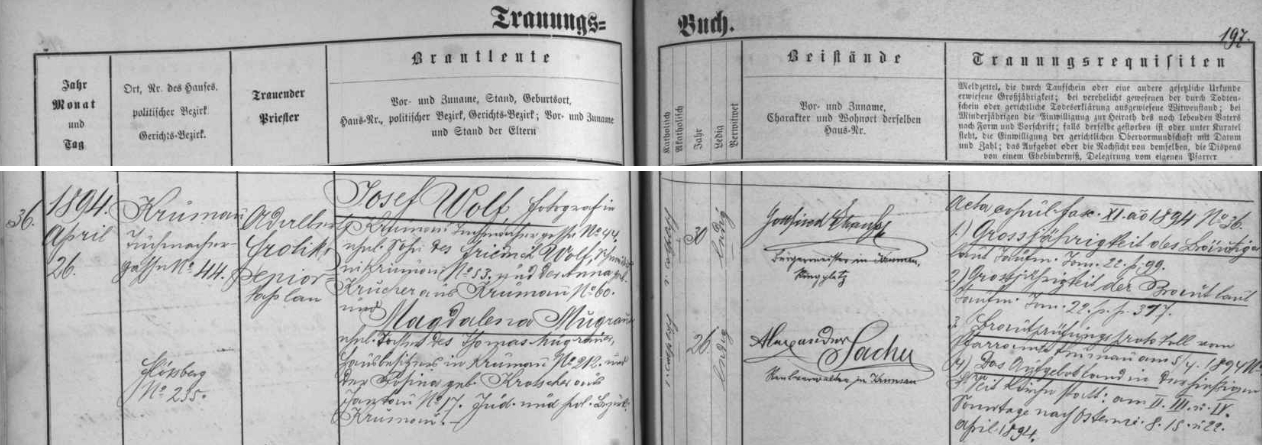 Trauungs=
Buch.
197.
Jahr
Monat
und
Tag
Ort, Nr. des Hauses,
politischer Bezirk
Gerichts-Bezirk.
Trauender
Priester
Brautleute
Vor- und Zuname, Stand, Geburtsort,
Haus-Nr., politischer Bezirk, Gerichts-Bezirk; Vor- und Zuname
und Stand der Eltern
Katholisch
Akatholisch
Jahr
Ledig
Verwitwet
Beistände
Vor- und Zuname,
Charakter und Wohnort derselben
Haus-Nr.
Trauungsrequisiten
Meldzettel, die durch Taufschein oder eine andere gesetzliche Urkunde
erwiesene Großjährigkeit; bei verehelicht gewesenen der durch Todten-
schein oder gerichtliche Todeserklärung ausgewiesene Witwenstand; bei
Minderjährigen die Einwilligung zur Heirath des noch lebenden Vaters
nach Form und Vorschrift; falls derselbe gestorben ist oder unter Kuratel
steht, die Einwilligung der gerichtlichen Obervormundschaft mit Datum
und Zahl; das Aufgebot oder die Nachsicht von demselben, die Dispens
von einem Ehehinderniß, Delegirung vom eigenen Pfarrer
36.
1894.
April
26.
Krumau
Tuchmacher
gasse No 44.
Flössberg
No 235.
Senior
Kaplan
Josef Wolf, Fotograf in
Krumau Tuchmachergasse No 44,
ehel. Sohn des
in Krumau No 53. und der Anna geb.
aus Krumau No 60.
und
Magdalena Mugrauer
ehel. Tochter des Thomas Mugrauer,
Hausbesitzers in Krumau No 212. und
der geb. aus
No 17. Jud. und pol. Bezirk
Krumau.
30
ledig
26
ledig
Bürgermeister in Krumau,
Ringplatz
Alexander
in Krumau
Acta copul. fasc. XI. ao 1894 No 36.
1.) Grossjährigkeit des Bräutigams
laut Taufm. Tom. 22. f. 99.
2.) Grossjährigkeit der Braut laut
Taufm. Tom. 22. f. 397.
3. Brautprüfungsprotokoll vom
Pfarramte Krumau am 5/4. 1894
4.) Das Aufgebot fand in der hiesigen
statt am II. III. u. IV.
Sonntage nach Ostern i. 8. 15. u 22.
April 1894.